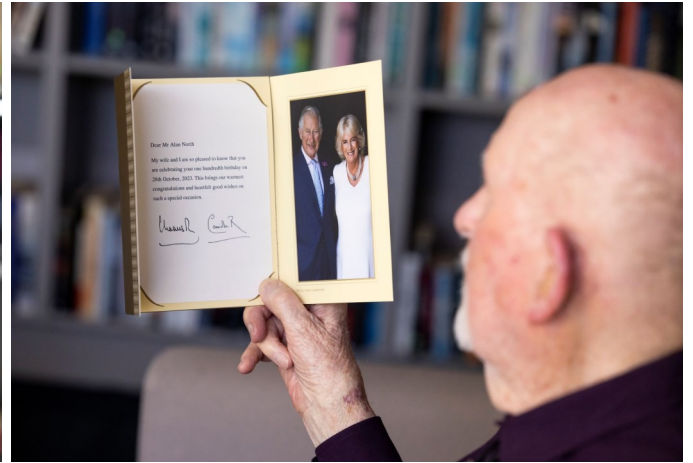 Dear Mr Alan North
My wife and I are so pleased to know that you
are celebrating your one hundredth birthday on
20th October, 2023. This brings our warmest
congratulations and heartfelt good wishes on
such a special occasion.
Charles R Camilla R